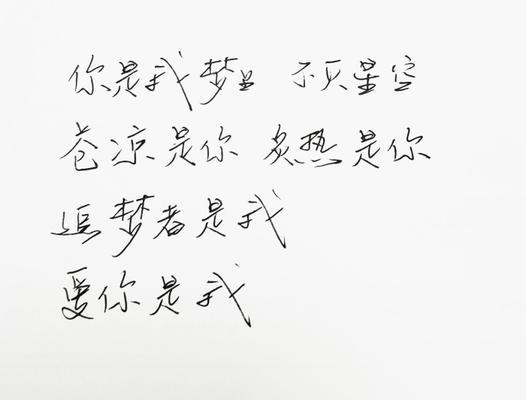 你是我梦里 不只星空
苍凉是你 炙热是你
追梦者是我
爱你是我